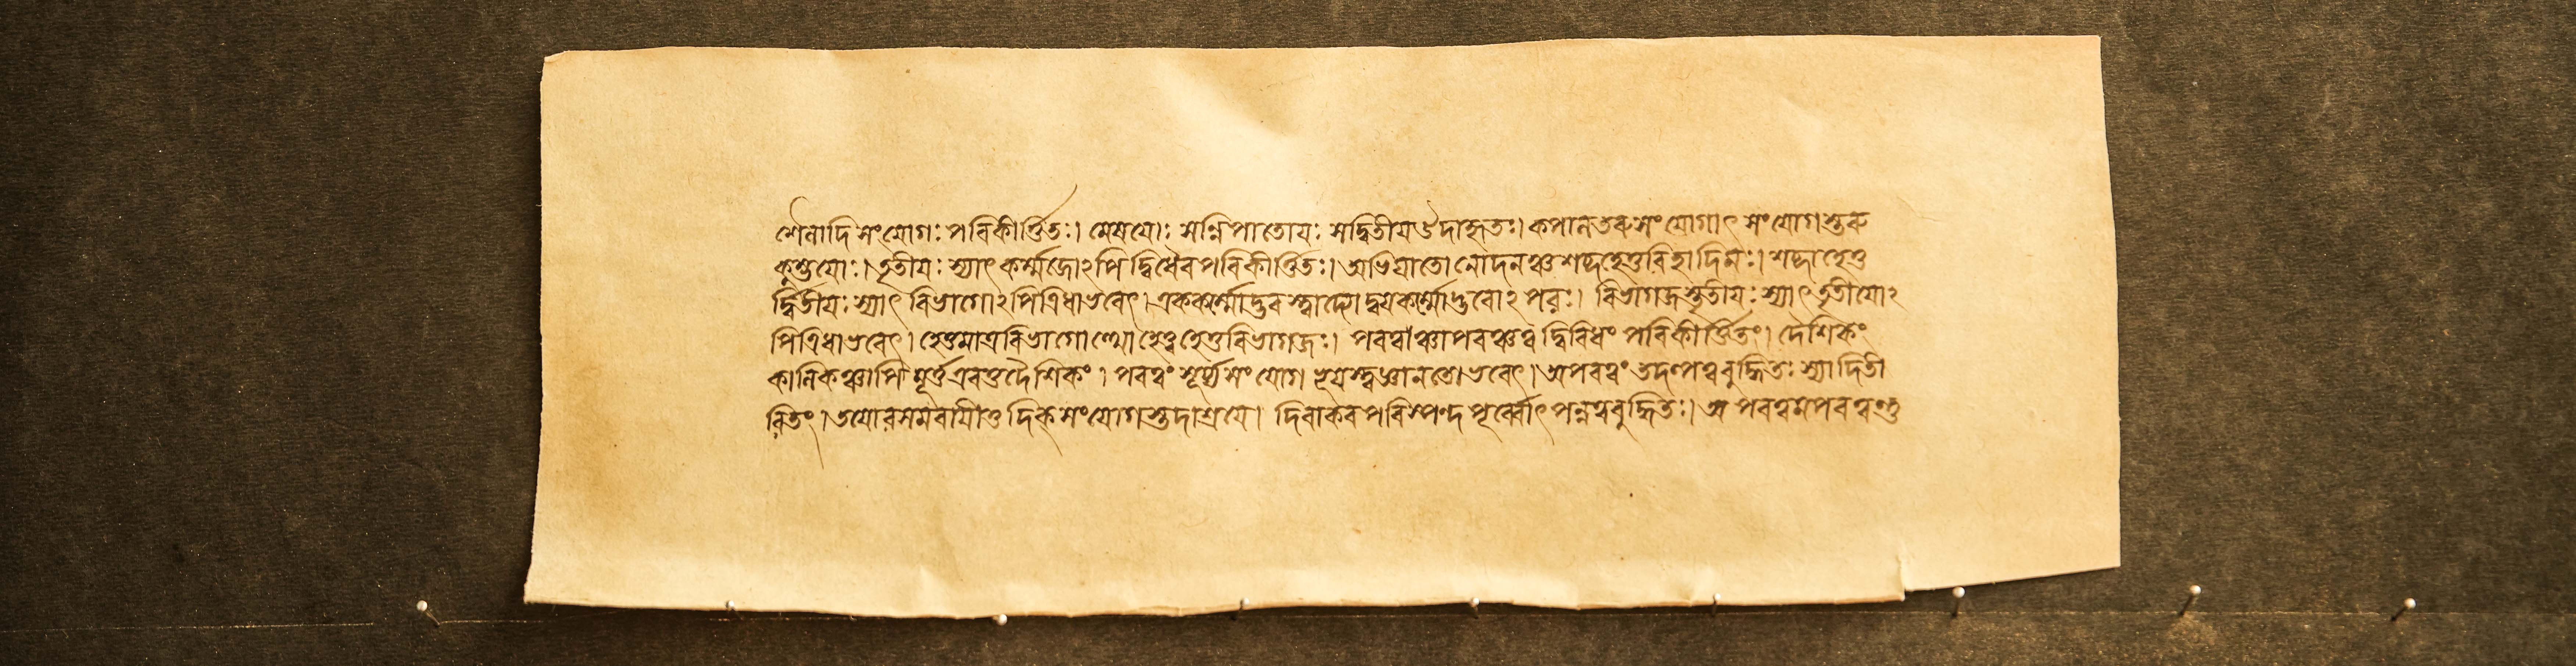 র্শৈলাদি সংযোগঃ পরিকীর্ত্তিতঃ। মেষযোঃ সন্নিপাতোযঃ সদ্বিতীয উদাহৃতঃ। কপালতরুসংযোগাৎ সংযোগস্তরু
কুম্ভযোঃ। তৃতীযঃ স্যাৎ কর্ম্মজোঽপি দ্বিধৈব পরিকীর্ত্তিতঃ। অভিঘাতোনোদনঞ্চ শব্দহেতুরিহাদিমঃ। শব্দাহেতু
র্দ্বিতীযঃ স্যাৎ বিভাগোঽপিত্রিধাভবেৎ। এককর্ম্মোদ্ভবস্ত্বাদ্যোদ্বযকর্ম্মোদ্ভবোঽপরঃ। বিভাগজস্তৃতীযঃ স্যাৎ তৃতীযোঽ
পিত্রিধাভবেৎ। হেতুমাত্রবিভাগোত্থোহেত্বহেতুবিভাগজঃ। পরত্বাঞ্চাপরত্বঞ্চ দ্বিবিধং পরিকীর্ত্তিতং। দৈশিকং
কালিকঞ্চাপি মূর্ত্তএবতুদৈশিকং। পরত্বং মূর্ত্তসংযোগ ভূযস্ত্বজ্ঞানতোভবেৎ। অপরত্বং তদল্পত্ববুদ্ধিতঃ স্যাদিতী
রিতং। তযোরসমবাযীতু দিক্সংযোগস্তদাশ্রযে। দিবাকরপরিস্পন্দপূর্ব্বোৎপন্নত্ববুদ্ধিতঃ। অ পরত্বমপরত্বন্তু